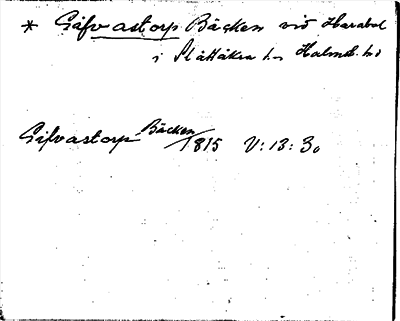 * Gifvastorp Bäcken vid Harabol
i Slättåkra s:n Halmst. hd
Gifvastorp Bäcken/1815 V: 13: 30